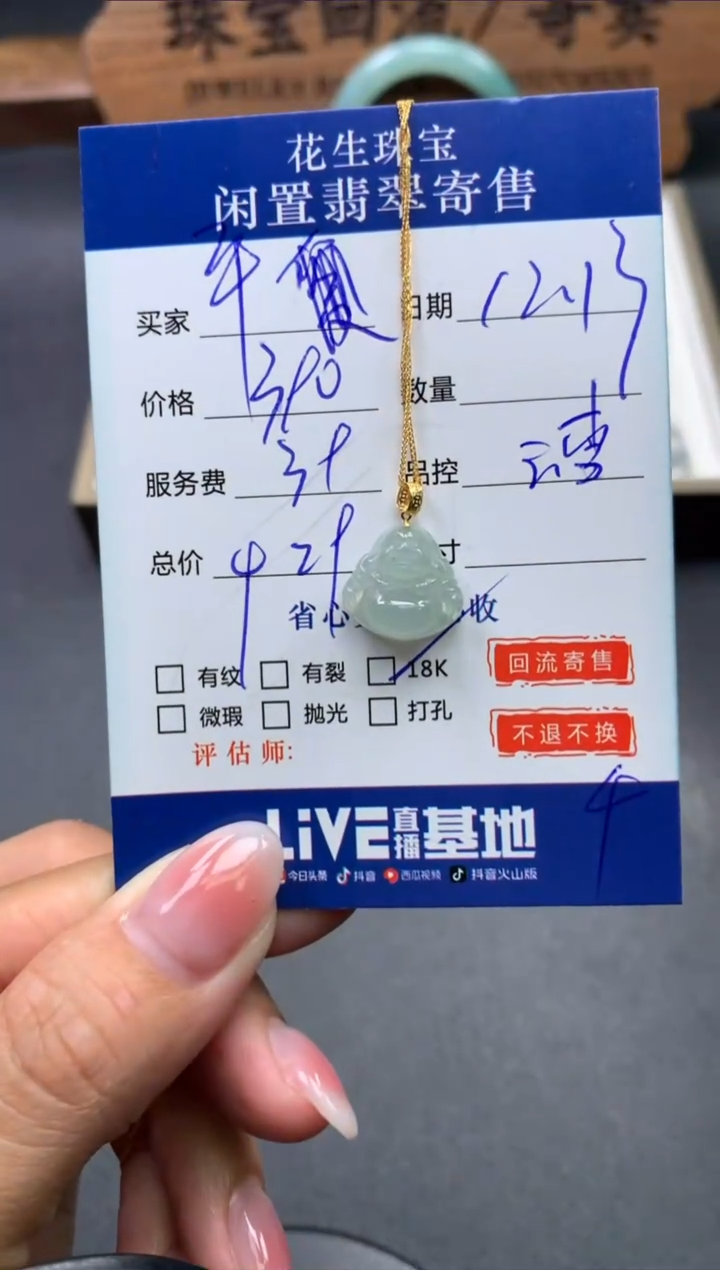 珠宝回流/寄卖
花生珠宝
闲置翡翠寄售
买家 日期 12.13
价格 390 数量
服务费 39 品控
总价 429 寸
省心 收
有纹 有裂 18K 回流寄售
微瑕 抛光 打孔 不退不换
评估师:
LiVE直播基地
今日头条 抖音 西瓜视频 抖音火山版